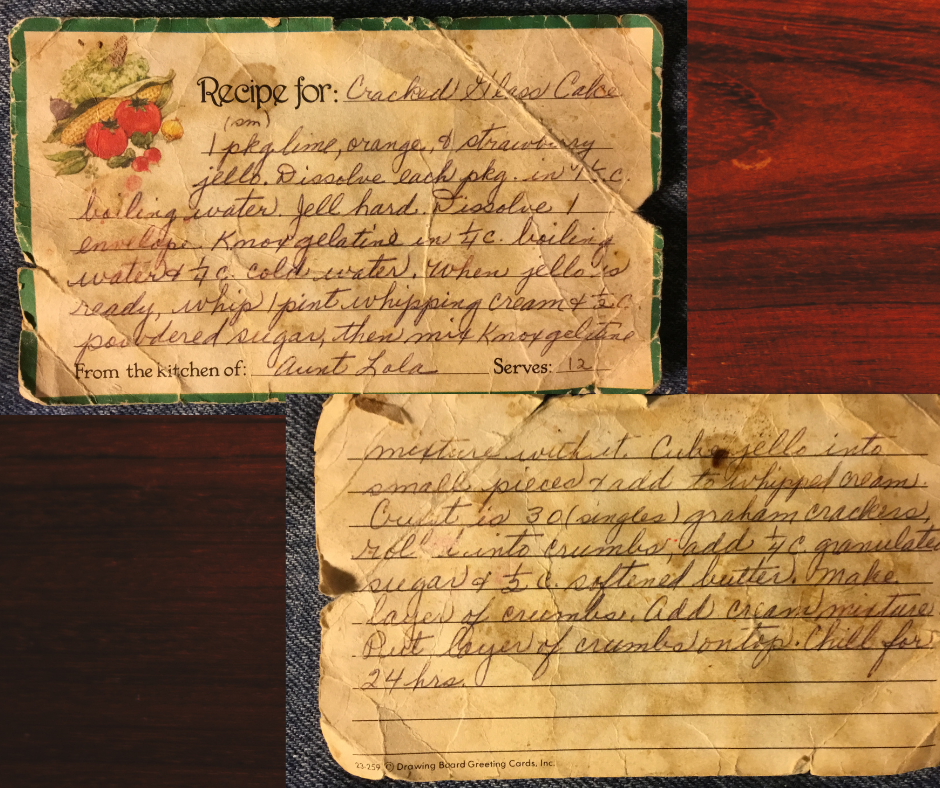 Recipe for: Cracked Glass Cake
(sm)
1 pkg lime, orange, & strawberry
jello. Dissolve each pkg. in 1½ c.
boiling water Jell hard. Dissolve 1
envelope Knox gelatine in ¼ c. boiling
water & ¼ c. cold water. When jello is
ready, whip 1 pint whipping cream & ½ c.
powdered sugar, then mix Knox gelatine
From the kitchen of: Aunt Lola Serves: 12
mixture with it. Cube jello into
small pieces & add to whipped cream.
Crust is 30 (singles) graham crackers,
rolled into crumbs, add ¼ c. granulated
sugar & ½ c. softened butter. Make
layer of crumbs. Add cream mixture
Put layer of crumbs on top. Chill for
24 hrs.
23-259 © Drawing Board Greeting Cards, Inc.